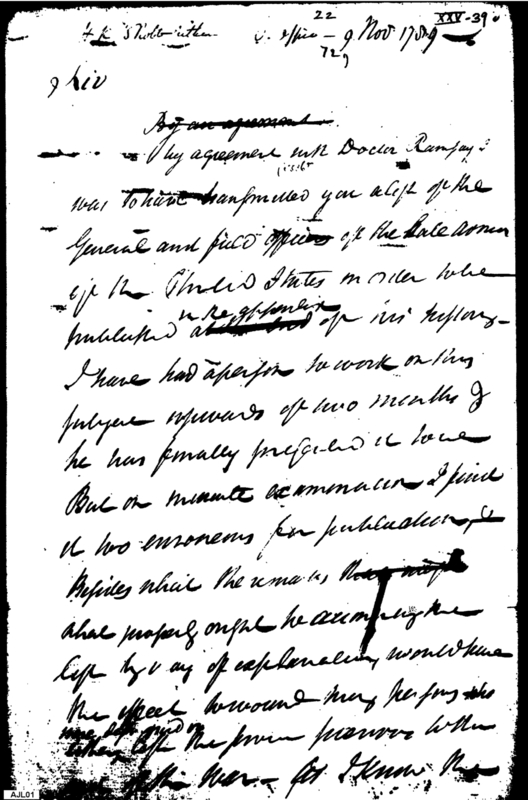 XXV-39
22
office - 9 Nov 1789
729
Sir
By an agreement
By agreement with Doctor Ramsay I
was to have transmitted you a list of the
General and field officers of the late Army
of the United States in order to be
in the appendix
published of his history -
I have had a person to work on this
subject upwards of two months &
he has finally prepared it
But on minute examination I find
it too erroneous for publication, &
Besides which the remarks
which properly ought to accompany the
list by way of explanation, would have
the effect to wound many persons who
left the service previous to the
of the War - As I know the
AJL01